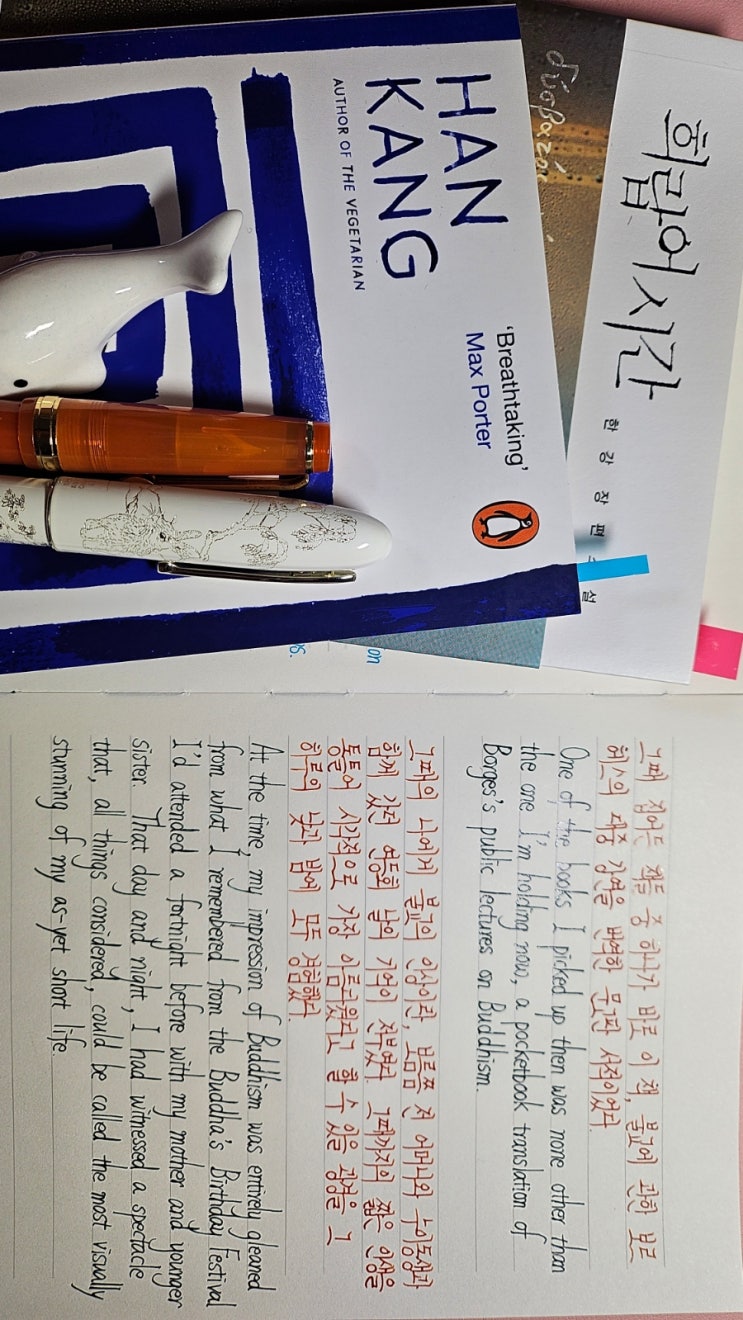 희랍어 시간
한강 장편소설
διαβάζω
HAN
KANG
AUTHOR OF THE VEGETARIAN
'Breathtaking'
Max Porter
on
os.
그때 집어든 책들 중 하나가 바로 이 책, 불교에 관한 보르
헤스의 대중 강연을 번역한 문고판 서적이었다.
One of the books I picked up then was none other than
the one I'm holding now, a pocketbook translation of
Borges's public lectures on Buddhism.
그때의 나에게 불교의 인상이란, 보름쯤 전 어머니와 누이동생과
함께 갔던 연등회 날의 기억이 전부였다. 그때까지의 짧은 인생을
통틀어 시각적으로 가장 아름다웠다고 할 수 있을 광경을 그
하루의 낮과 밤에 모두 경험했다.
At the time, my impression of Buddhism was entirely gleaned
from what I remembered from the Buddha's Birthday Festival
I'd attended a fortnight before with my mother and younger
sister. That day and night, I had witnessed a spectacle
that, all things considered, could be called the most visually
stunning of my as-yet short life.